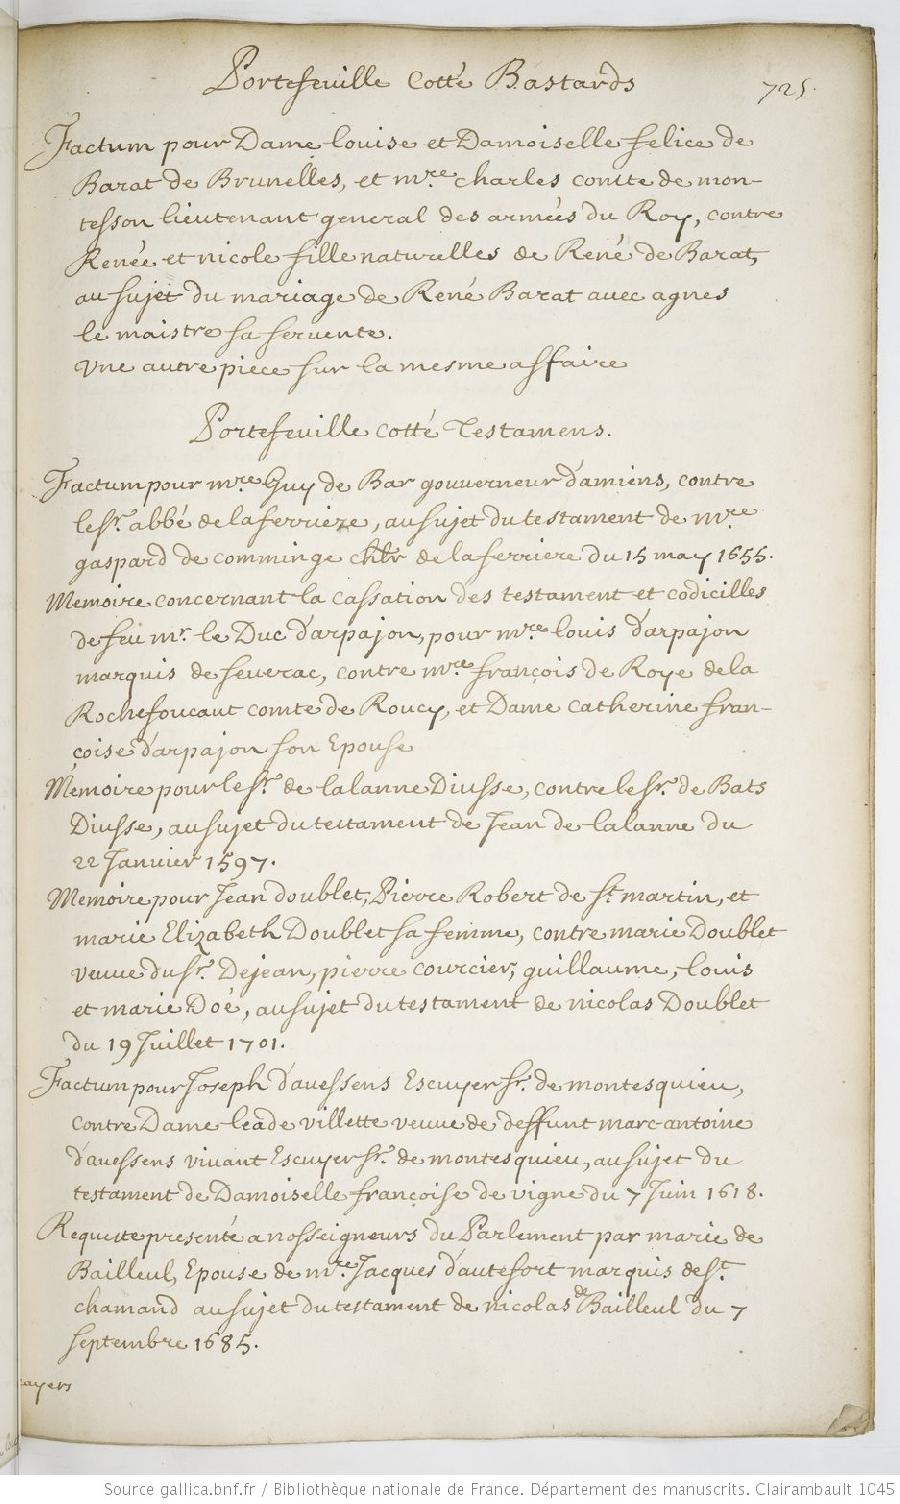 Portefeuille Cotté Bastards
725.
Factum pour Dame Louise et Damoiselle felice de
Barat de Brunelles, et mre. charles comte de mon-
tesson lieutenant general des armées du Roy, contre
Renée et nicole fille naturelles de René de Barat,
au sujet du mariage de René Barat avec agnes
le maistre sa servente.
Une autre piece sur la mesme affaire
Portefeuille cotté Testamens.
Factum pour mre. Guy de Bar gouverneur d'amiens, contre
le Sr. abbé de la ferrieze, au sujet du testament de mre
gaspard de comminge chlr de la ferriere du 15 may 1655.
Memoire concernant la cassation des testament et codicilles
de feu mr. le Duc d'arpajon, pour mre louis d'arpajon
marquis de severac, contre mre. françois de Roye de la
Rochefoucaut comte de Roucy, et Dame catherine fran-
çoise d'arpajon son Epouse
Memoire pour le Sr. de lalanne Diusse, contre le Sr. de Bats
Diusse, au sujet du testament de Jean de lalanne du
22 Janvier 1597.
Memoire pour Jean doublet, Pierre Robert de St martin, et
marie Elizabeth Doublet sa femme, contre marie Doublet
veuve du Sr. Dejean, pierre courcier, guillaume, louis
et marie Doé, au sujet du testament de nicolas Doublet
du 19 Juillet 1701.
Factum pour Joseph d'avessens Escuyer Sr. de montesquieu,
contre Dame lea de villette veuve de deffunt marc antoine
d'avessens vivant Escuyer Sr. de montesquieu, au sujet du
testament de Damoiselle françoise de vigne du 7 Juin 1618.
Requeste presenté a nosseigneurs du Parlement par marie de
Bailleul, Epouse de mre. Jacques d'autefort marquis de St.
chamand au sujet du testament de nicolas de Bailleul du 7
septembre 1685.
cayers
Source gallica.bnf.fr / Bibliothèque nationale de France. Département des manuscrits. Clairambault 1045